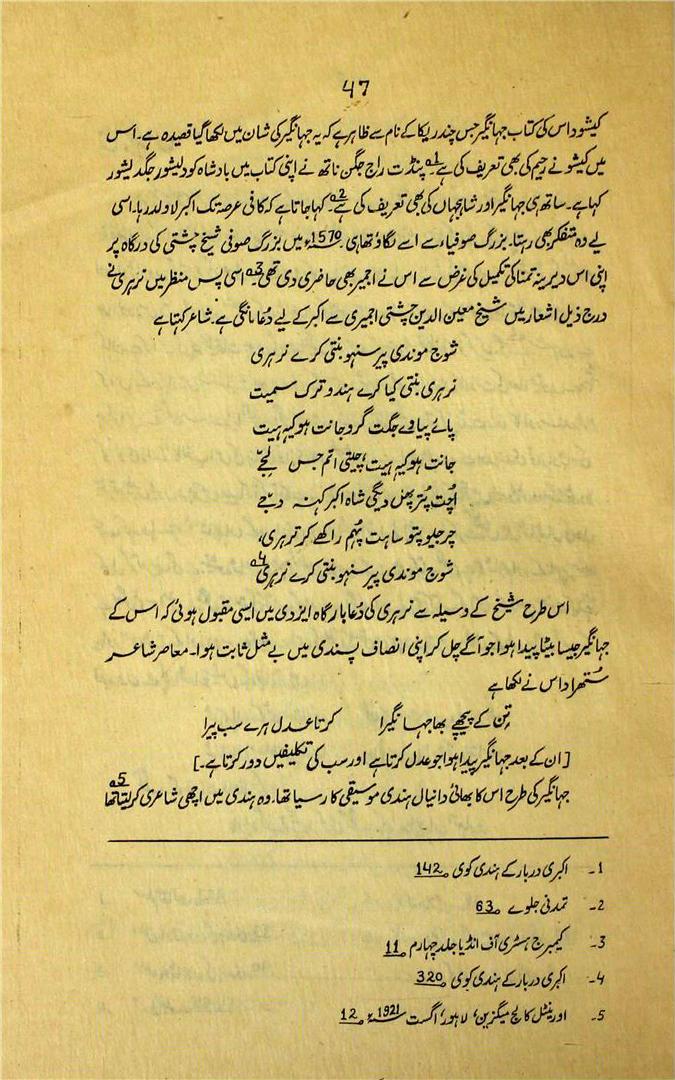 47
کیشوداس کی کتاب جہانگیر جس چندریکا کے نام سے ظاہر ہے کہ یہ جہانگیر کی شان میں لکھا گیا قصیدہ ہے۔ اس
میں کیشو نے رحیم کی بھی تعریف کی ہے۔1 پنڈت راج جگن ناتھ نے اپنی کتاب میں بادشاہ کو دلیشور جگدیشور
کہا ہے۔ ساتھ ہی جہانگیر اور شاہجہاں کی بھی تعریف کی ہے۔2 کہا جاتا ہے کہ کافی عرصہ تک اکبر لاولد رہا۔ اسی
لیے وہ متفکر بھی رہتا۔ بزرگ صوفیاء سے اسے لگاؤ تھا ہی 1570ء میں بزرگ صوفی شیخ چشتی کی درگاہ پر
اپنی اس دیرینہ تمنا کی تکمیل کی غرض سے اس نے اجمیر بھی حاضری دی تھی۔3 اسی پس منظر میں نرہری نے
درج ذیل اشعار میں شیخ معین الدین چشتی اجمیری سے اکبر کے لیے دُعا مانگی ہے۔ شاعر کہتا ہے
شوج موندی پیر سنہو بنتی کرے نرہری
نرہری بنتی کیا کرے ہندو ترک سمیت
پائے پیاوے جگت گرو جانت ہو کیہ ہیت
جانت ہو کیہ ہیت، چیتی اتم جس لجّے
اُچت پُتر پھل دیگی شاہ اکبر کہنہ دجّے
چرجلیو پتو ساہت پُہم راکھے کر نرہری،
شوج موندی پیر سنہو بنتی کرے نرہری4
اس طرح شیخ کے وسیلہ سے نرہری کی دُعا بارگاہ ایزدی میں ایسی مقبول ہوئی کہ اس کے
جہانگیر جیسا بیٹا پیدا ہوا جو آگے چل کر اپنی انصاف پسندی میں بے مثل ثابت ہوا۔ معاصر شاعر
سُتھرا داس نے لکھا ہے
تِن کے پیچھے بھا جہانگیرا کرتا عدل ہرے سب پیرا
[ان کے بعد جہانگیر پیدا ہوا جو عدل کرتا ہے اور سب کی تکلیفیں دور کرتا ہے۔]
جہانگیر کی طرح اس کا بھائی دانیال ہندی موسیقی کا رسیا تھا۔ وہ ہندی میں اچھی شاعری کر لیتا تھا5
1۔ اکبری دربار کے ہندی کوی ص 142
2۔ تمدنی جلوے ص 63
3۔ کیمبرج ہسٹری آف انڈیا جلد چہارم ص 11
4۔ اکبری دربار کے ہندی کوی ص 320
5۔ اورینٹل کالج میگزین، لاہور، اگست 1921ء ص 12